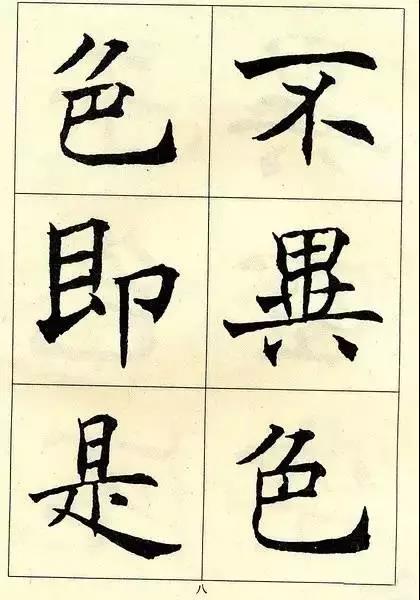 不異色
色即是
八